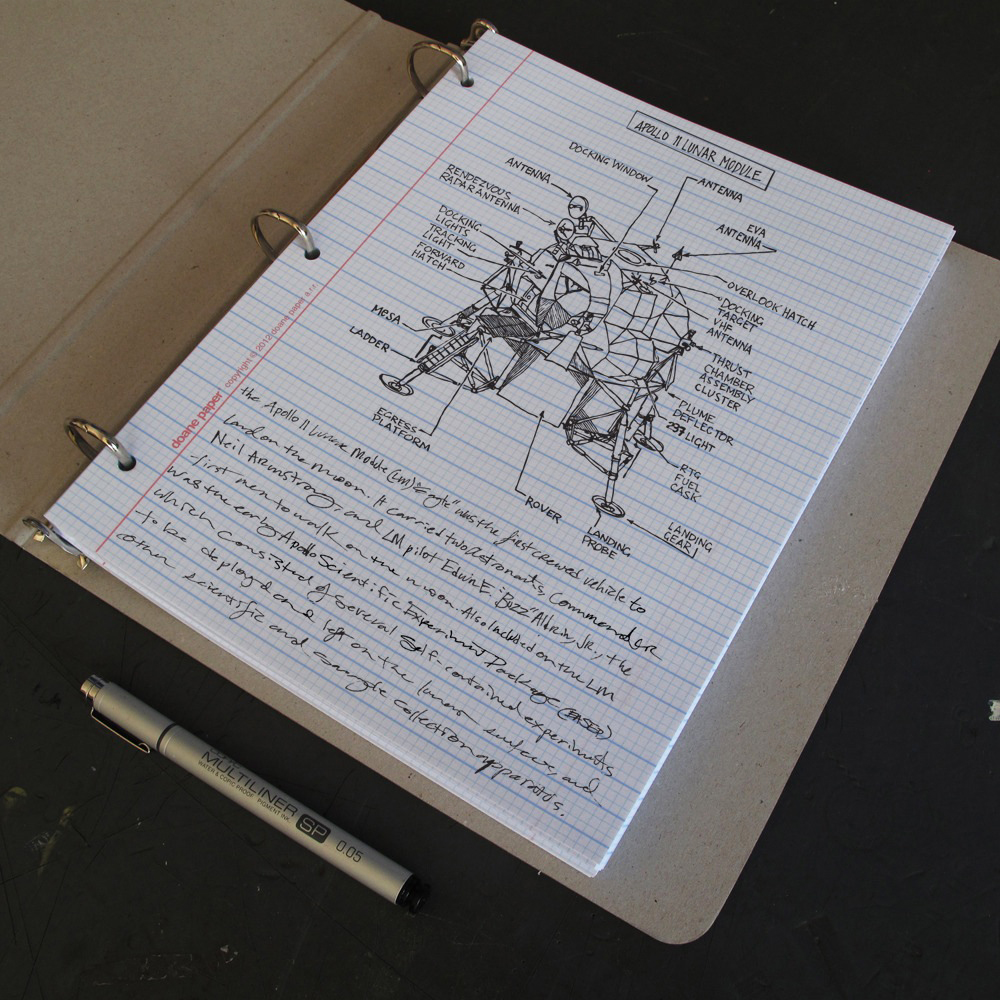 APOLLO 11 LUNAR MODULE
DOCKING WINDOW
ANTENNA
ANTENNA
RENDEZVOUS
RADAR ANTENNA
EVA
ANTENNA
DOCKING
LIGHTS
TRACKING
LIGHT
FORWARD
HATCH
OVERLOOK HATCH
DOCKING
TARGET
VHF
ANTENNA
MESA
LADDER
THRUST
CHAMBER
ASSEMBLY
CLUSTER
PLUME
DEFLECTOR
LIGHT
EGRESS
PLATFORM
RTG
FUEL
CASK
ROVER
LANDING
PROBE
LANDING
GEAR
the Apollo 11 Lunar Module (LM) "Eagle" was the first crewed vehicle to
land on the moon. It carried two astronauts, Commander
Neil Armstrong, and LM pilot Edwin E. "Buzz" Aldrin, Jr., the
first men to walk on the moon. Also included on the LM
was the early Apollo Scientific Experiments Package (EASEP)
which consisted of several self-contained experiments
to be deployd and left on the lunar surface, and
other scientific and sample collection apparatus.
doane paper copyright © 2012 doane paper
MULTILINER SP 0.05
WATER & COPIC PROOF PIGMENT INK